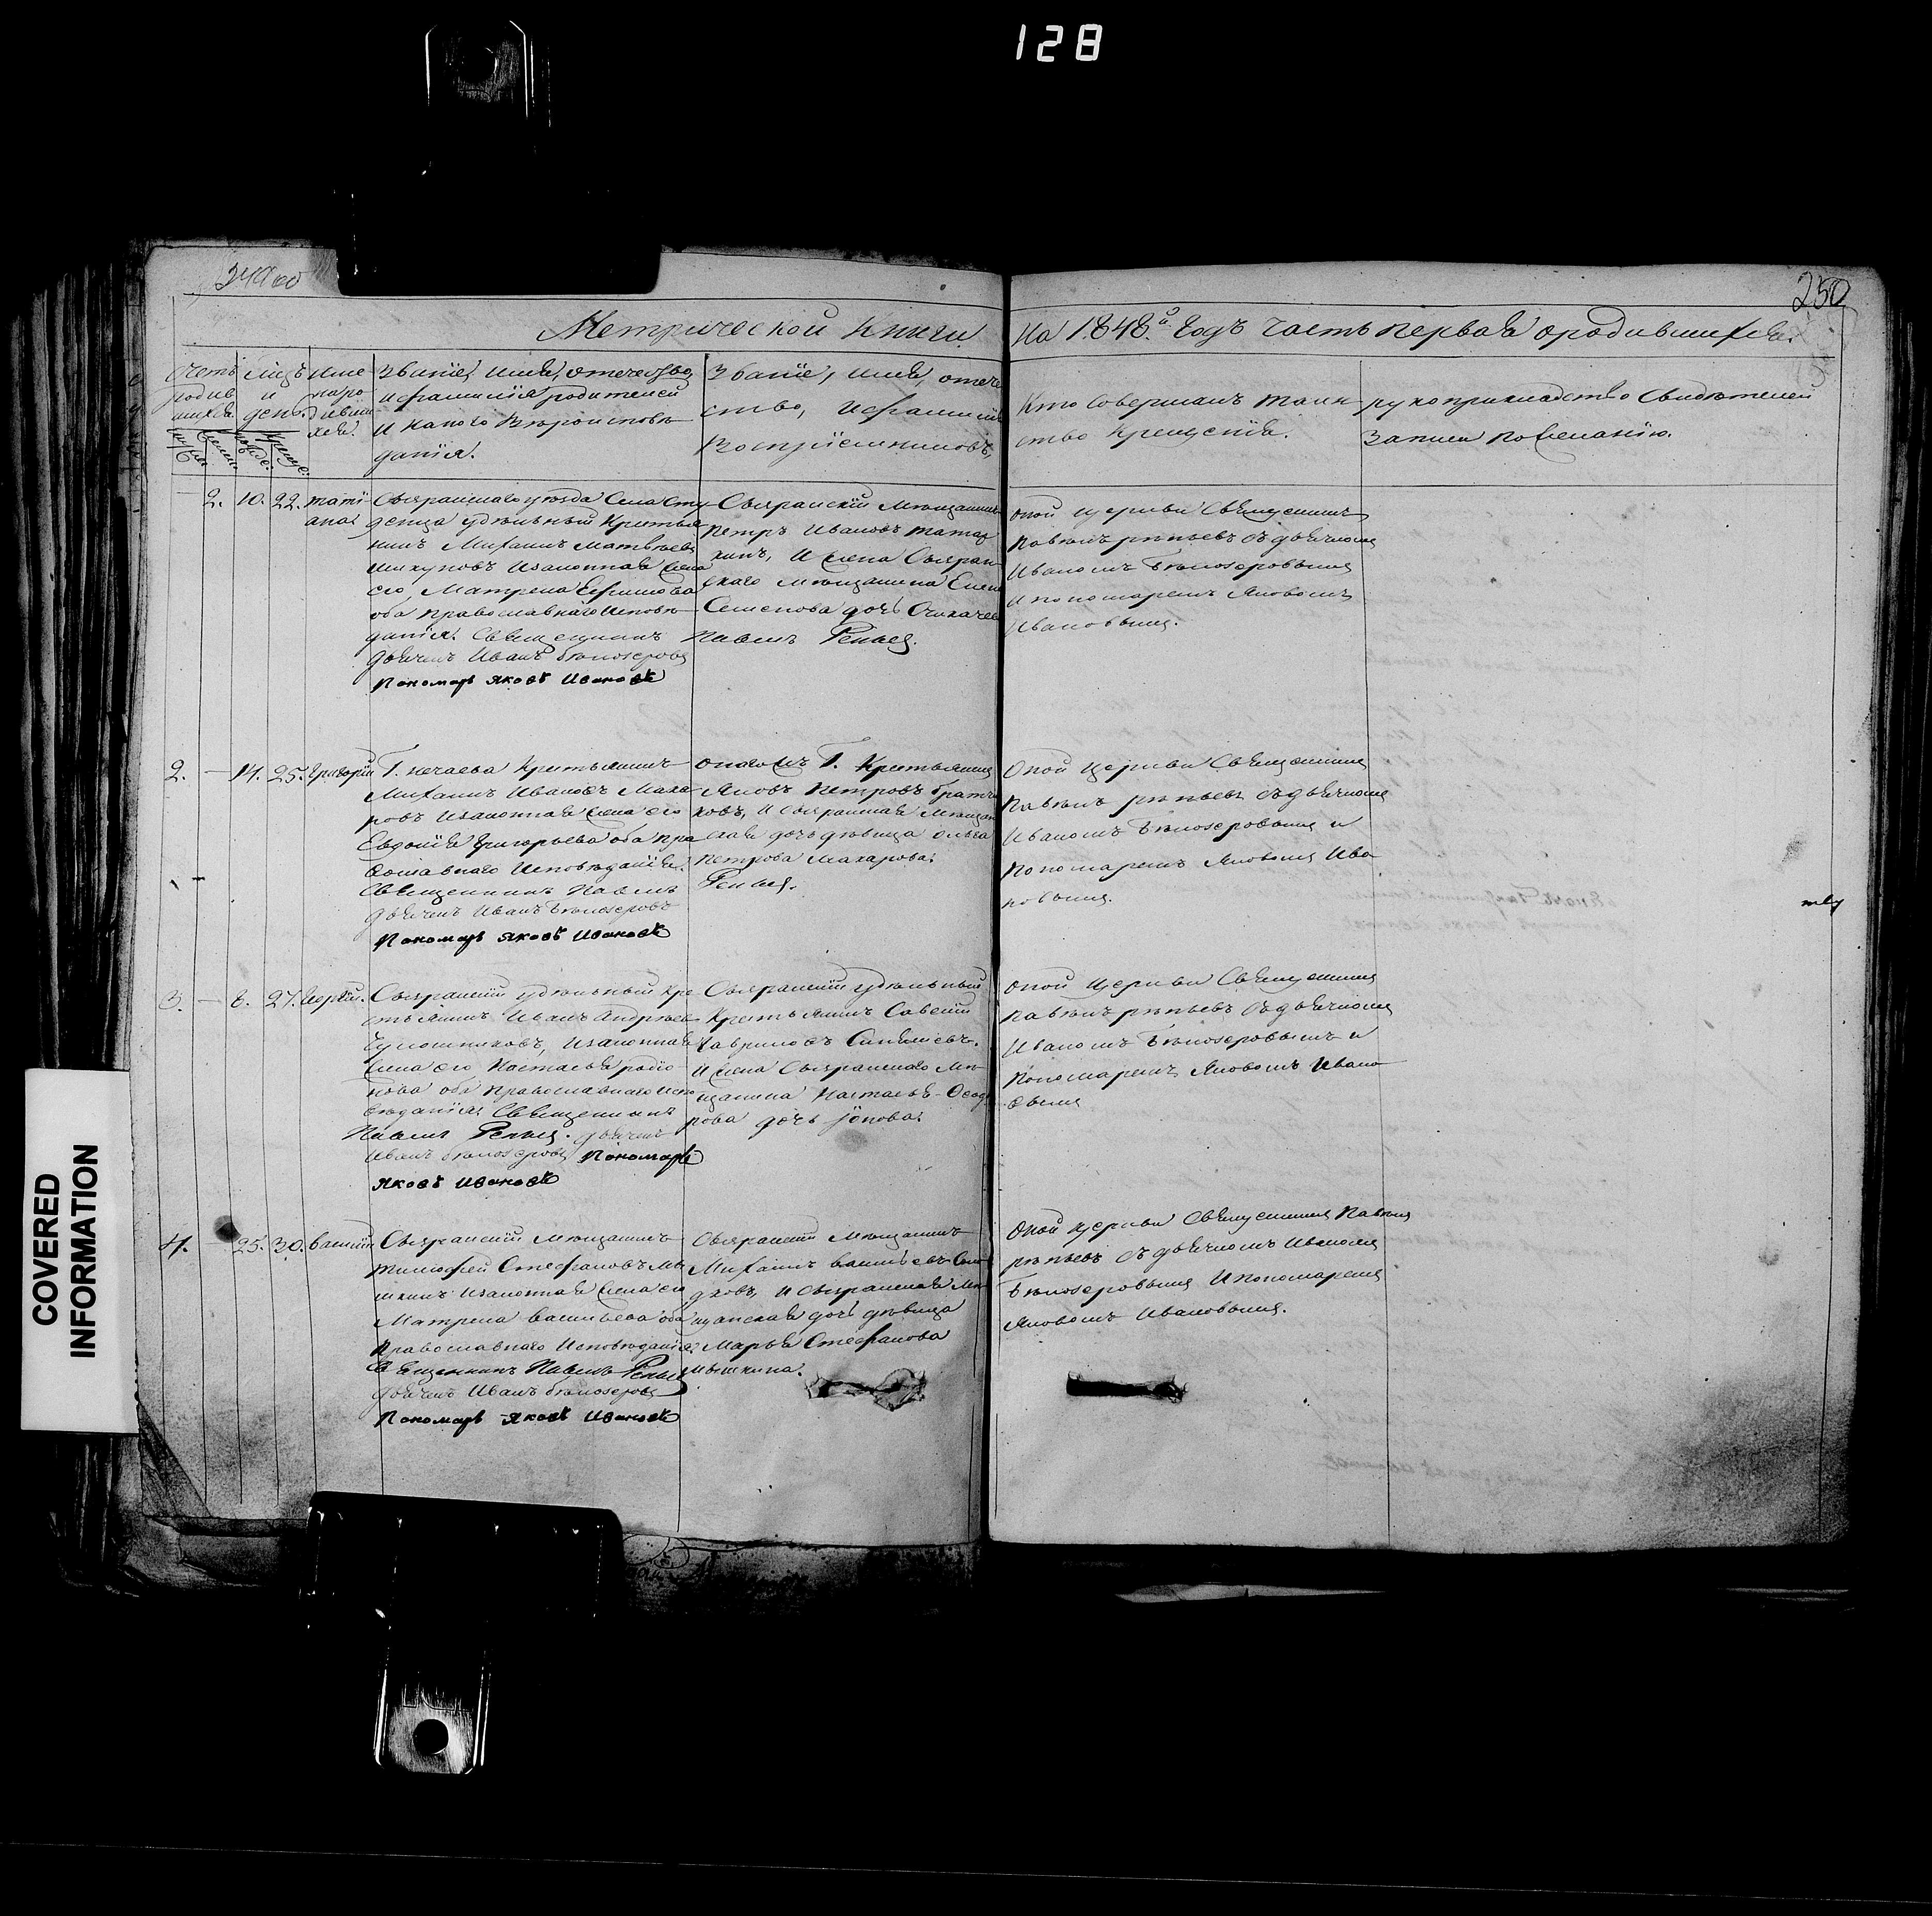 128
250
Метрической книги на 1848й годъ часть первая о родившихся.
Счетъ родившихся.
Мѣсяцъ и день.
Имена родившихся.
Званіе, имя, отечество,
и фамилія родителей
и какого вѣроисповѣ
данія.
Званіе, имя, отече
ство, и фамилія
воспріемниковъ,
Кто совершалъ таин
ство крещенія.
рукоприкладство свидѣтелей
записи по желанію.
2. 10. 22. Тати
ана
Сызранскаго уѣзда села Сту
денца удѣльный крестья
нинъ Михаилъ Матвѣевъ
законная жена
его, Матрена Ефимова
оба православнаго исповѣ
данія. Священникъ Павелъ Репьев.
дьячекъ Иванъ Бѣлозеровъ
Пономарь Яковъ Ивановъ
Сызранскій мѣщанинъ
Петръ Ивановъ
и жена Сызран
скаго мѣщанина Елена
Семенова дочь
оной церкви священникъ
Павелъ Рѣпьевъ съ дьячкомъ
Иваномъ Бѣлозеровымъ
и пономаремъ Яковомъ
Ивановымъ.
2. — 14. 25. Григорій
Г. Нечаева крестьянинъ
Михаилъ Ивановъ Мака
ровъ законная жена его
Евдокія Григорьева оба пра
вославнаго исповѣданія.
Священникъ Павелъ Репьев.
дьячекъ Иванъ Бѣлозеровъ
Пономарь Яковъ Ивановъ
Г. крестьянинъ
Яковъ Петровъ
и Сызранская мѣщан
ская дочь дѣвица Ольга
Петрова Макарова.
Оной церкви священникъ
Павелъ Рѣпьевъ съ дьячкомъ
Иваномъ Бѣлозеровымъ и
пономаремъ Яковомъ Ива
новымъ.
3. — 6. 27. Георгій.
Сызранскій удѣльный кре
стьянинъ Иванъ Андреевъ
законная
жена его Настасья Родіо
нова оба православнаго испо
вѣданія. Священникъ
Павелъ Репьев. дьячекъ
Иванъ Бѣлозеровъ Пономарь
Яковъ Ивановъ
Сызранскій удѣльный
крестьянинъ Савелій
Гавриловъ
и жена Сызранскаго мѣ
щанина Настасья Ѳеодо
рова дочь
оной церкви священникъ
Павелъ Рѣпьевъ съ дьячкомъ
Иваномъ Бѣлозеровымъ и
пономаремъ Яковомъ Ивано
вымъ
4. 25. 30. Василій
Сызранскій мѣщанинъ
Тимофей Стефановъ Мы
шкинъ законная жена его
Матрена Васильева оба
православнаго исповѣданія.
Священникъ Павелъ Репьев
дьячекъ Иванъ Бѣлозеровъ
Пономарь Яковъ Ивановъ
Сызранскій мѣщанинъ
Михаилъ Васильевъ
и Сызранская мѣ
щанская дочь дѣвица
Марья Стефанова
Мышкина.
Оной церкви священникъ Павелъ
Рѣпьевъ съ дьячкомъ Иваномъ
Бѣлозеровымъ и пономаремъ
Яковомъ Ивановымъ.
COVERED
INFORMATION